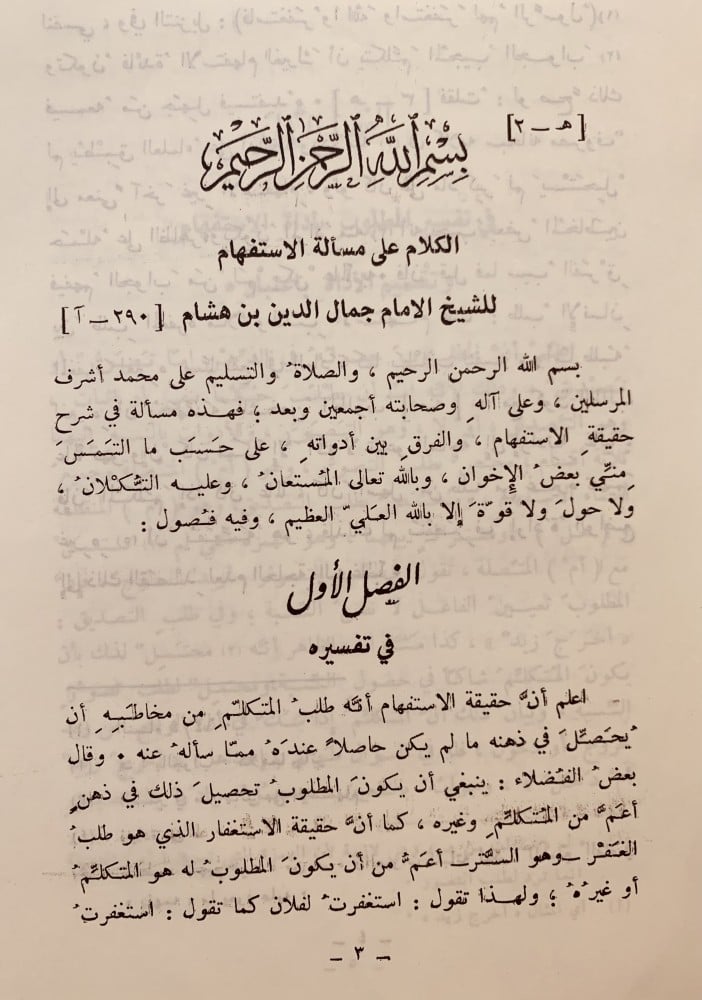 [هـ – ٢]
بسم الله الرحمن الرحيم
الكلام على مسألة الاستفهام
للشيخ الامام جمال الدين بن هشام [ ٢٩٠ – آ ]
بسم الله الرحمن الرحيم ، والصلاةُ والتسليم على محمد أشرف
المرسلين ، وعلى آلهِ وصحابته أجمعين وبعد ؛ فهذه مسألة في شرح
حقيقةِ الاستفهام ، والفرقِ بين أدواتهِ ، على حَسَب ما التمَسَ
مِنتِّي بعضُ الإِخوان ، وبالله تعالى المُستعانُ ، وعليه التُّكْلانُ ،
ولا حولَ ولا قوّةَ إلا بالله العَليّ العظيم ، وفيه فُصول :
الفصل الأول
في تفسيره
اعلم أنَّ حقيقة الاستفهام أنَّه طلبُ المتكلّمِ من مخاطَبِهِ أن
يُحَصِّلَ في ذهنه ما لم يكن حاصلاً عندَهُ ممّا سألهُ عنه . وقال
بعضُ الفُضلاء : ينبغي أن يكونَ المطلوبُ تحصيلَ ذلك في ذهنٍ
أعَمَّ من المُتكلِّمِ وغيره ، كما أنَّ حقيقة الاستغفار الذي هو طلبُ
الغَفْرْ –وهو السَّتر– أعَمُّ من أن يكونَ المطلوبُ له هو المتكلِّمُ
أو غيرُهُ ؛ ولهذا تقول : استغفرتُ لفلان كما تقول : استغفرتُ
– ٣ –